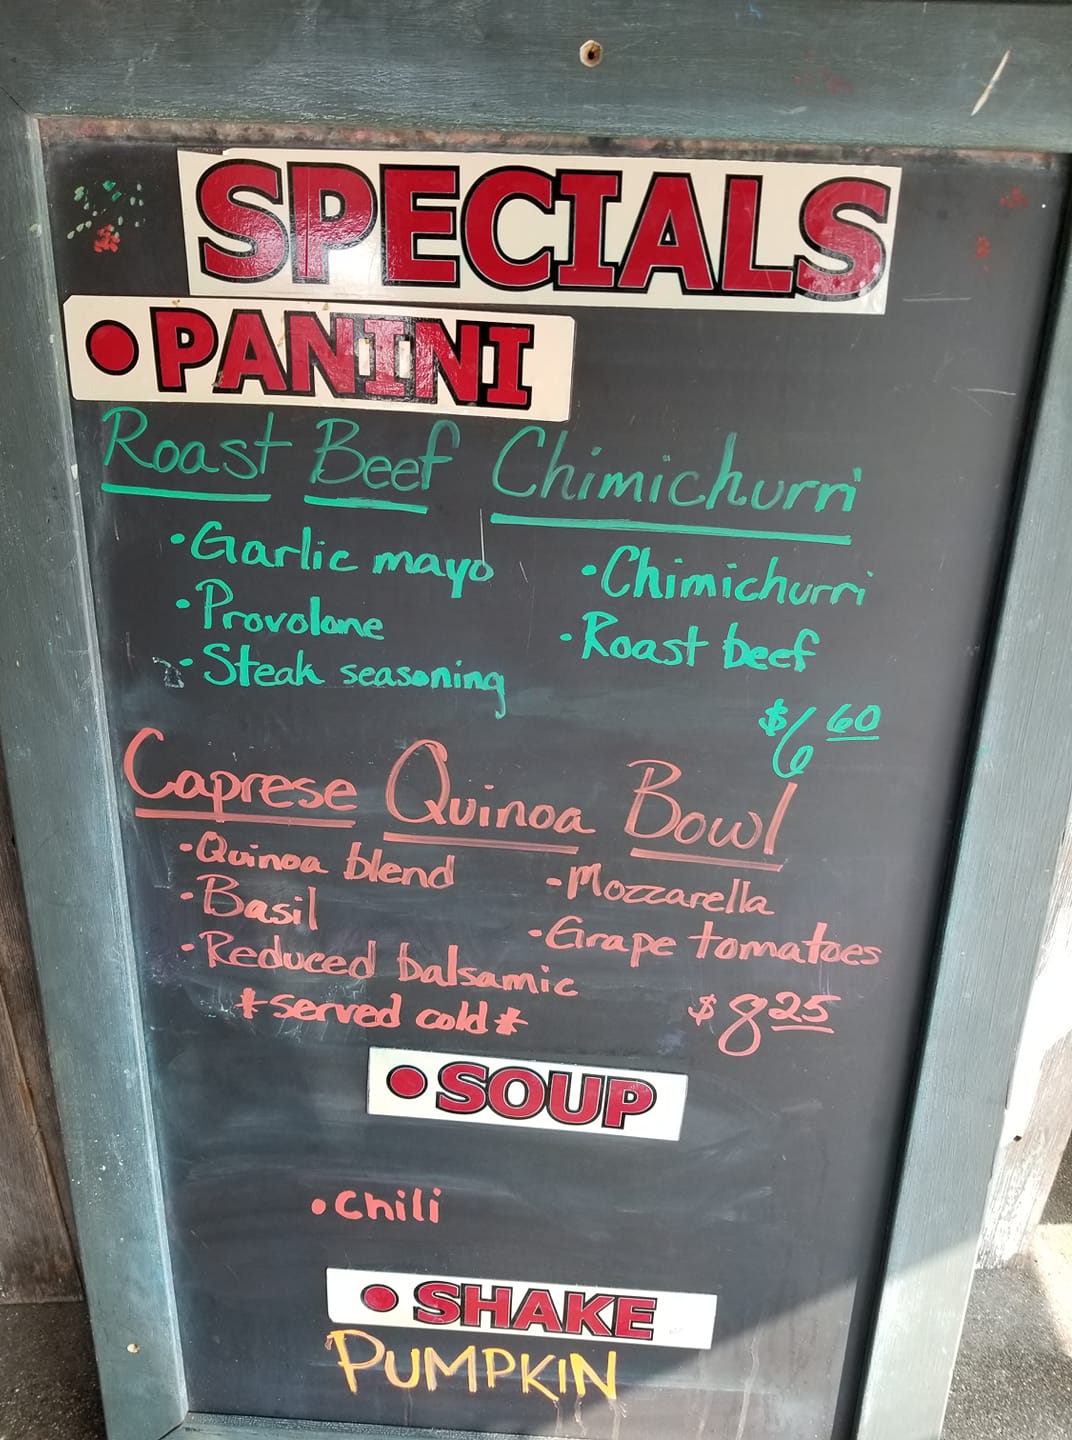 SPECIALS
• PANINI
Roast Beef Chimichurri
• Garlic mayo
• Chimichurri
• Provolone
• Roast beef
• Steak seasoning
$6 60
Caprese Quinoa Bowl
• Quinoa blend
• Mozzarella
• Basil
• Grape tomatoes
• Reduced balsamic
*served cold*
$8 25
• SOUP
• Chili
• SHAKE
PUMPKIN